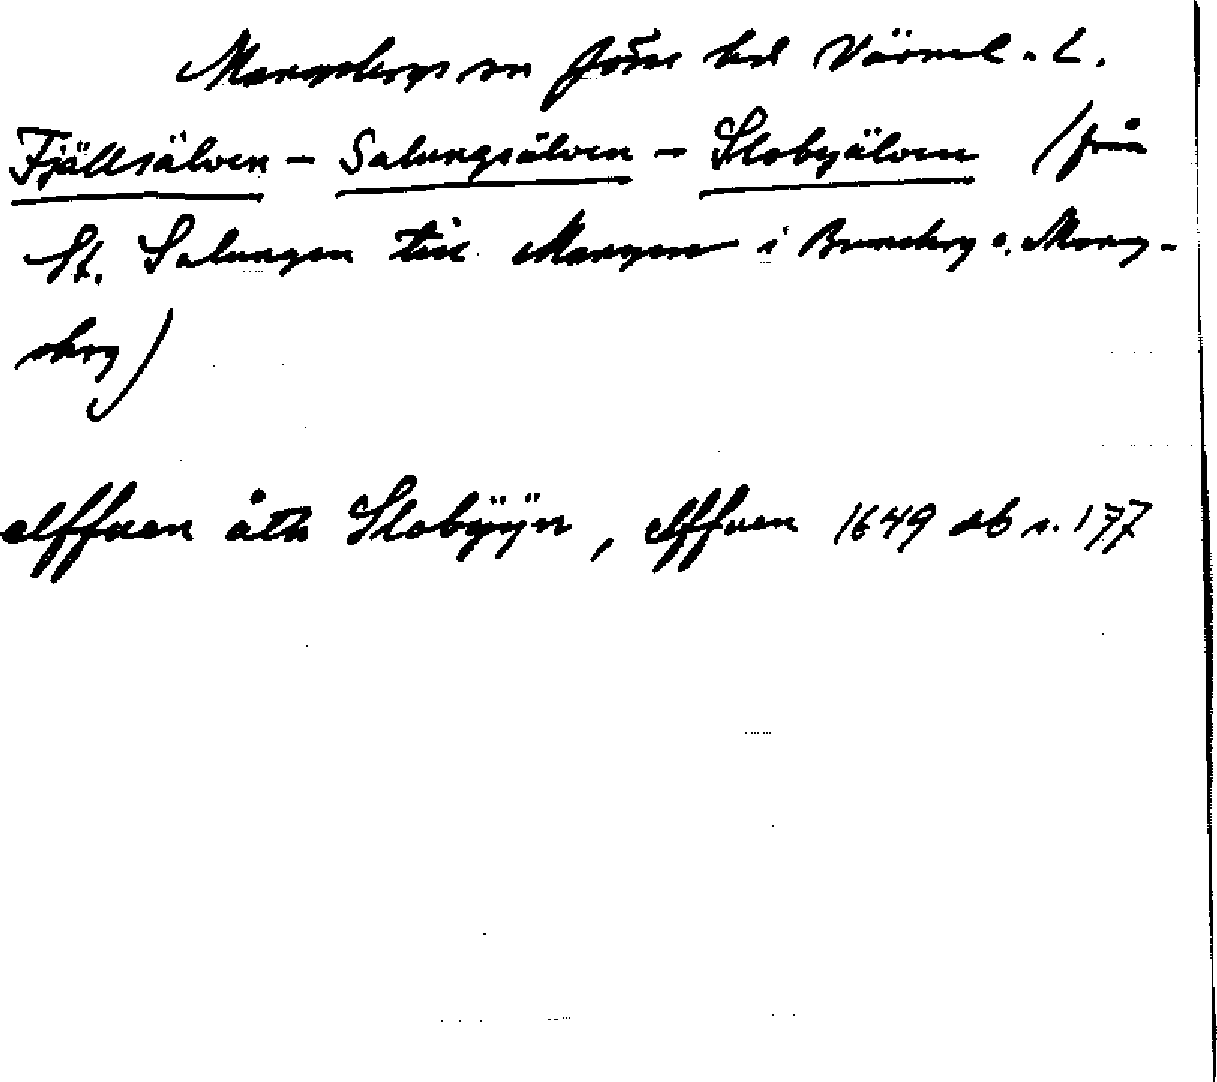 Mangskogs sn Jösse hd Värml. L.
Fjällsälven – Salungsälven – Slobyälven (från
St. Salungen till Mangen i Brunskog o. Mang-
skog)
elffuen åth Slobÿÿn, elffuen 1649 db s. 177